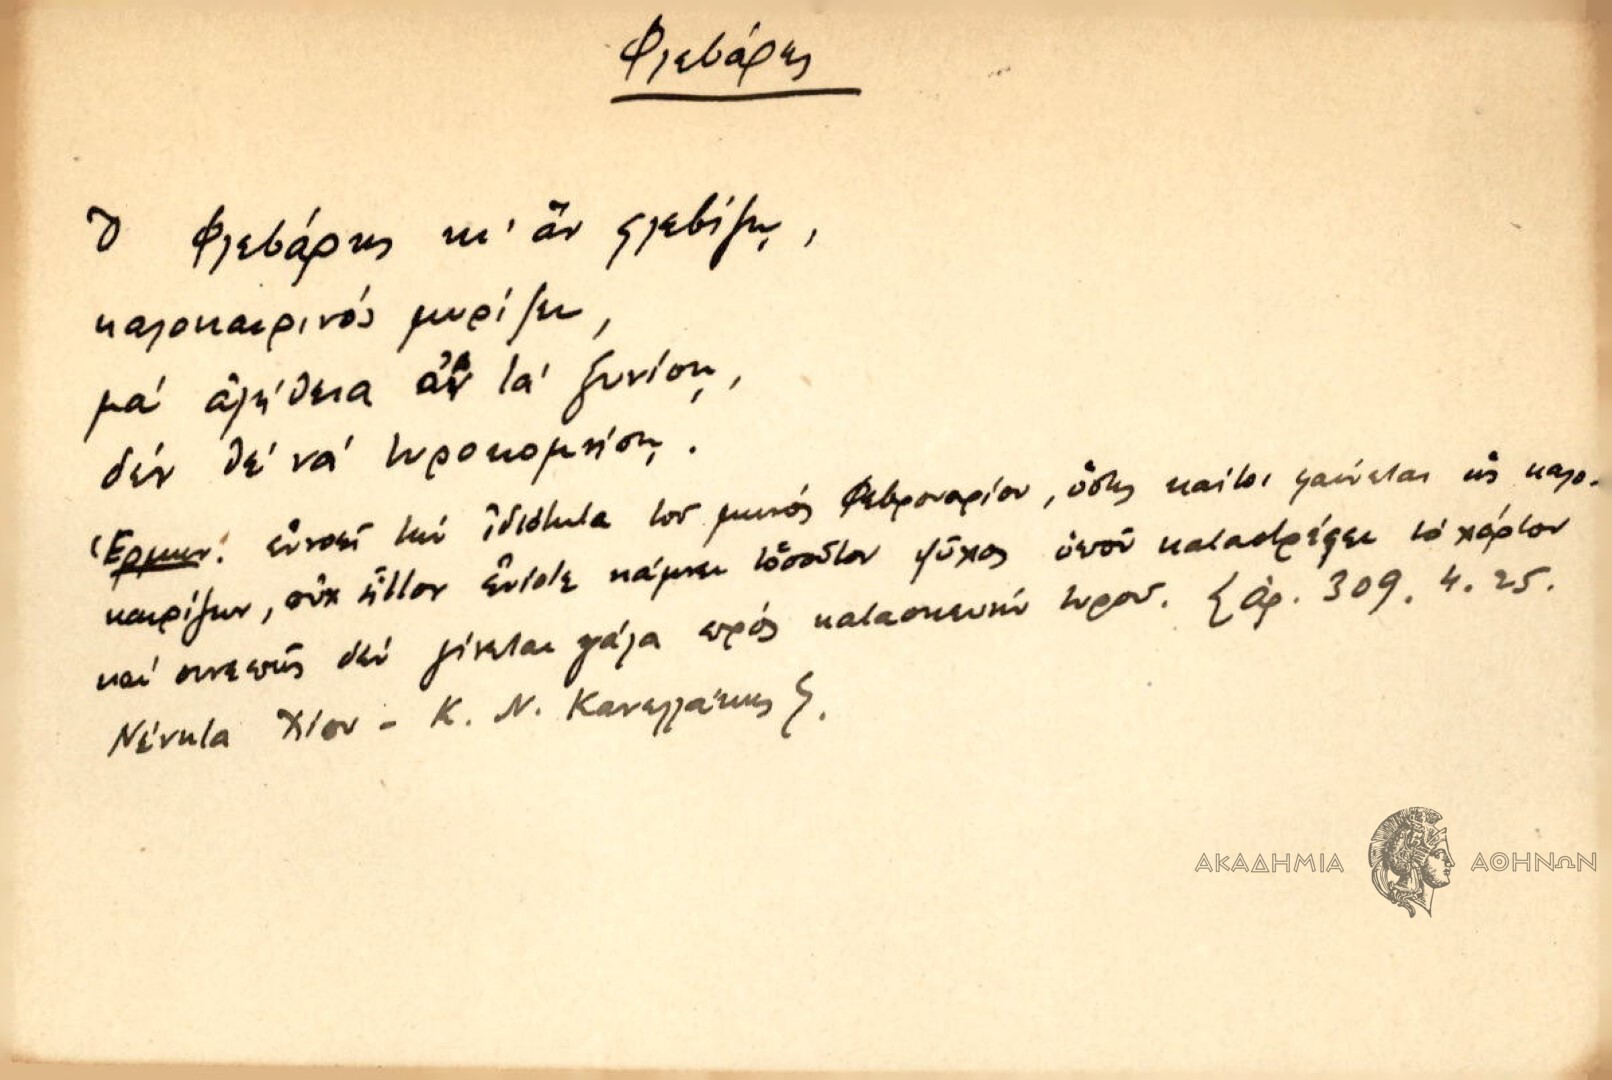 Φλεβάρης
Ὁ Φλεβάρης κι' ἂν φλεβίζῃ,
καλοκαιρινός μυρίζει,
μά ἀλήθεια ἄν τά ξυνίσῃ,
δέν θέ νά τυροκομήσῃ.
(Ἑρμην. ἐννοεῖ τήν ἰδιότητα τοῦ μηνός Φεβρουαρίου, ὅστις καίτοι φαίνεται ὡς καλο-
καιρίζων, οὐχ ἧττον ἐνίοτε κάμνει τοσοῦτον ψῦχος ὁποῦ καταστρέφει τό χόρτον
καί συνεπῶς δέν γίνεται γάλα πρός κατασκευήν τυροῦ. {ἀρ. 309. 4. 25.
Νένητα Χίου - Κ. Ν. Κανελλάκης}.
ΑΚΑΔΗΜΙΑ ΑΘΗΝΩΝ